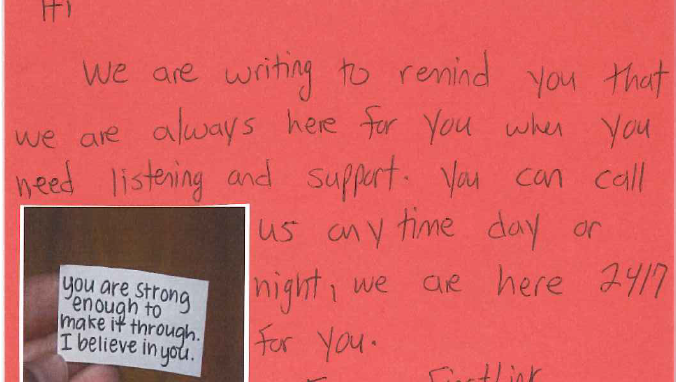 Hi
We are writing to remind you that
we are always here for you when you
need listening and support. You can call
us any time day or
night, we are here 24/7
for you.
you are strong
enough to
make it through.
I believe in you.
FirstLink